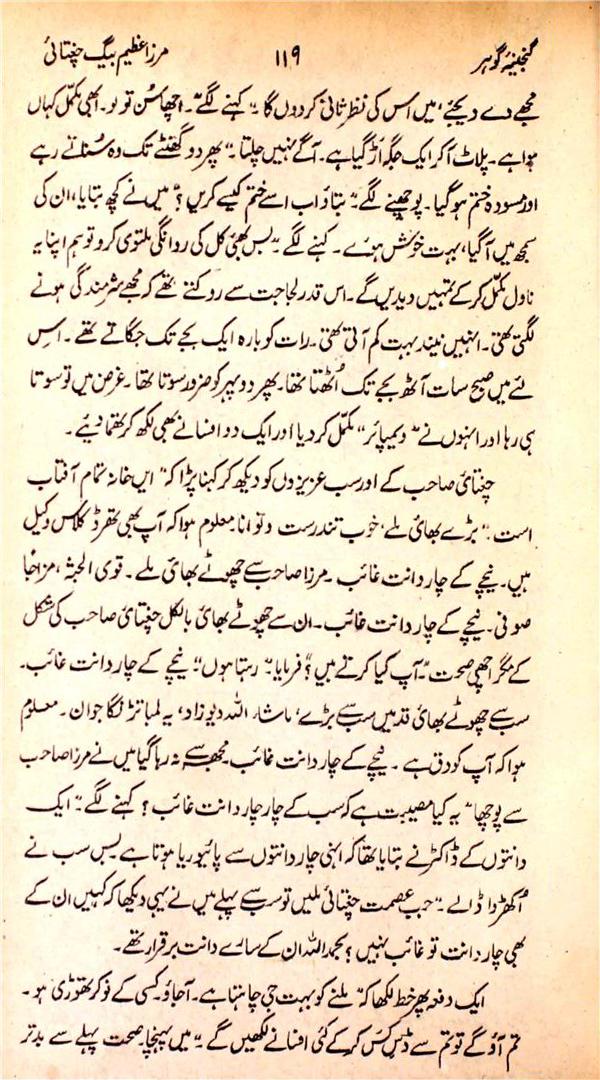 گنجینۂ گوہر ۱۱۹ مرزا عظیم بیگ چغتائی
مجھے دے دیجئے، میں اس کی نظر ثانی کر دوں گا۔" کہنے لگے۔ "اچھا سُن تو لو۔ ابھی مکمل کہاں
ہوا ہے۔ پلاٹ آ کر ایک جگہ اَڑ گیا ہے۔ آگے نہیں چلتا۔" پھر دو گھنٹے تک وہ سُناتے رہے
اور مسودہ ختم ہو گیا۔ پوچھنے لگے۔ "بتاؤ اب اسے ختم کیسے کریں؟" میں نے کچھ بتایا، ان کی
سمجھ میں آ گیا، بہت خوش ہوئے۔ کہنے لگے۔ "بس بھئی کل کی روانگی ملتوی کرو تو ہم اپنا یہ
ناول مکمل کر کے تمہیں دیدیں گے۔ اس قدر لجاجت سے روکتے تھے کہ مجھے شرمندگی ہونے
لگتی تھی۔ انہیں نیند بہت کم آتی تھی۔ رات کو بارہ ایک بجے تک جگاتے تھے۔ اس
لئے میں صبح سات آٹھ بجے تک اُٹھتا تھا۔ پھر دوپہر کو ضرور سوتا تھا۔ غرض میں تو سوتا
ہی رہا اور انہوں نے "ویمپائر" مکمل کر دیا اور ایک دو افسانے بھی لکھ کر تھما دیئے۔
چغتائی صاحب کے اور سب عزیزوں کو دیکھ کر کہنا پڑا کہ "ایں خانہ تمام آفتاب
است۔" بڑے بھائی ملے، خوب تندرست و توانا۔ معلوم ہوا کہ آپ بھی تھرڈ کلاس وکیل
ہیں۔ نیچے کے چار دانت غائب۔ مرزا صاحب سے چھوٹے بھائی ملے۔ قوی الجثہ، مزاجاً
صوفی۔ نیچے کے چار دانت غائب۔ ان سے چھوٹے بھائی بالکل چغتائی صاحب کی شکل
کے مگر اچھی صحت۔ "آپ کیا کرتے ہیں؟" فرمایا۔ "رہتا ہوں"۔ نیچے کے چار دانت غائب۔
سب سے چھوٹے بھائی قد میں سب سے بڑے، ماشاء اللہ دیو زاد، یہ لمبا تڑنگا جوان۔ معلوم
ہوا کہ آپ کو دق ہے۔ نیچے کے چار دانت غائب۔ مجھ سے نہ رہا گیا میں نے مرزا صاحب
سے پوچھا "یہ کیا مصیبت ہے کہ سب کے چار چار دانت غائب؟ کہنے لگے۔ "ایک
دانتوں کے ڈاکٹر نے بتایا تھا کہ انہی چار دانتوں سے پائیوریا ہوتا ہے۔ بس سب نے
اُکھڑوا ڈالے۔" جب عصمت چغتائی ملیں تو سب سے پہلے میں نے یہی دیکھا کہ کہیں ان کے
بھی چار دانت تو غائب نہیں؟ بحمد اللہ ان کے سارے دانت برقرار تھے۔
ایک دفعہ پھر خط لکھا کہ "ملنے کو بہت جی چاہتا ہے۔ آ جاؤ۔ کسی کے نوکر تھوڑی ہو۔
تم آؤ گے تو تم سے ڈسکس کر کے کئی افسانے لکھیں گے۔" میں پہنچا۔ صحت پہلے سے بدتر